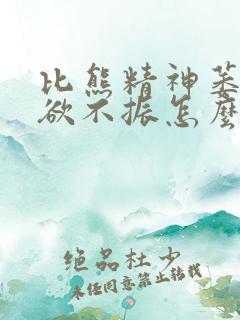 比熊精神萎
欲不振怎麼
绝品杜少
未经同意禁止转载